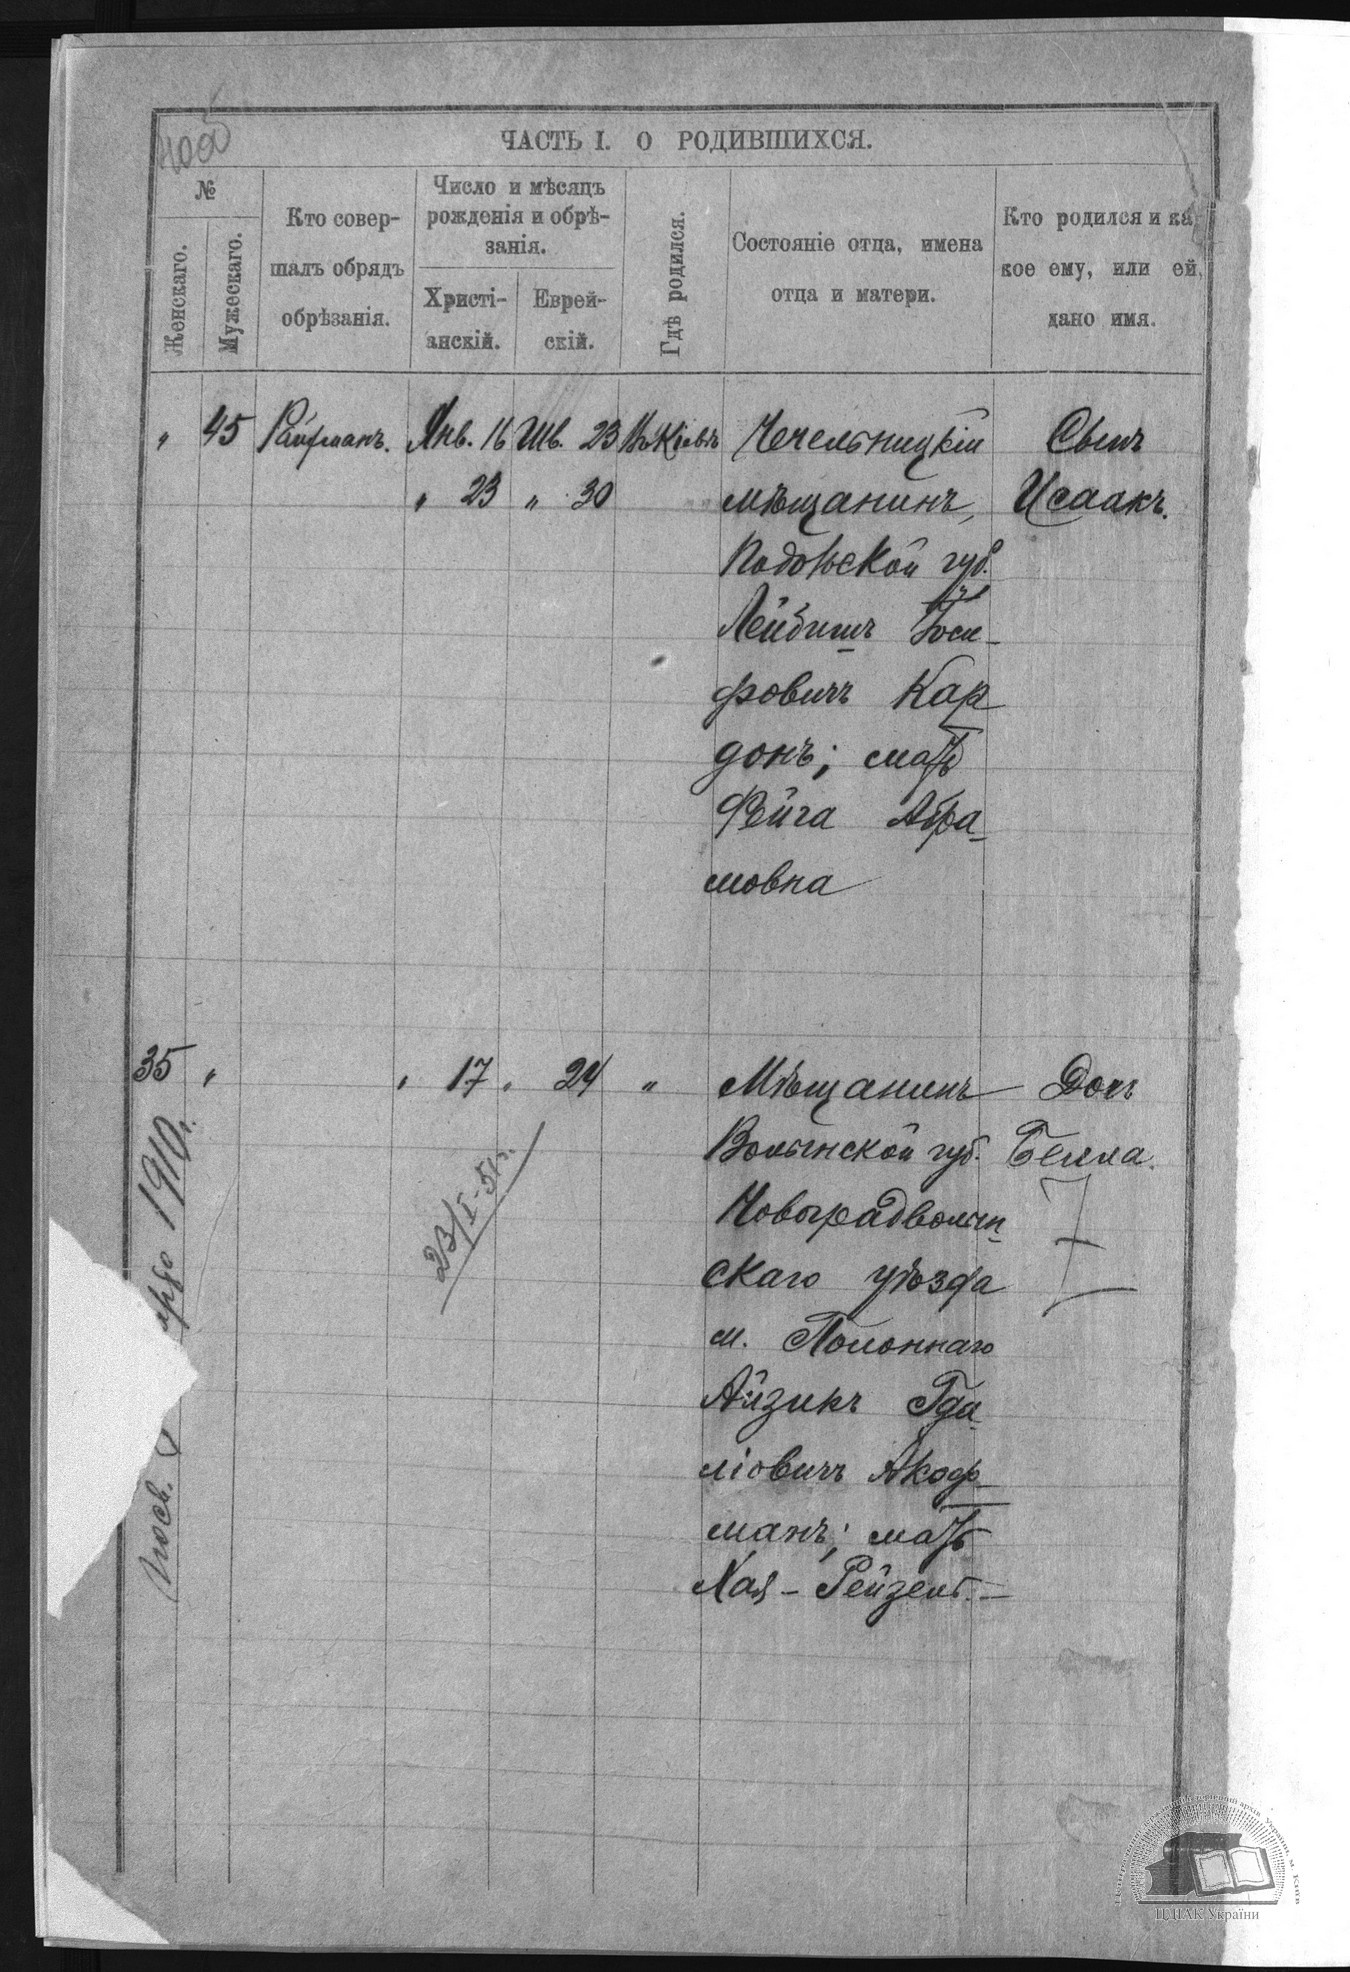 ЧАСТЬ I. О РОДИВШИХСЯ.
№
Женскаго.
Мужескаго.
Кто совер-
шалъ обрядъ
обрѣзанія.
Число и мѣсяцъ
рожденія и обрѣ-
занія.
Христі-
анскій.
Еврей-
скій.
Гдѣ родился.
Состояніе отца, имена
отца и матери.
Кто родился и ка
кое ему, или ей,
дано имя.
" 45 Райфманъ. Янв. 16 Шв. 23 Въ Кіевѣ Чечельницкій Сынъ
" 23 " 30 мѣщанинъ, Исаакъ.
Подольской губ.
Лейбишъ Іоси-
фовичъ Кар
донъ; мать
Фейга Абра-
мовна
35 " " 17 " 24 " Мѣщанинъ Дочь
Волынской губ. Белла.
Новоградволын-
скаго уѣзда
м. Полоннаго
Айзикъ Гда-
ліовичъ Акоф-
манъ; мать
Хая - Рейзель. -
23/I-51г.
1910г.
ЦДІАК України